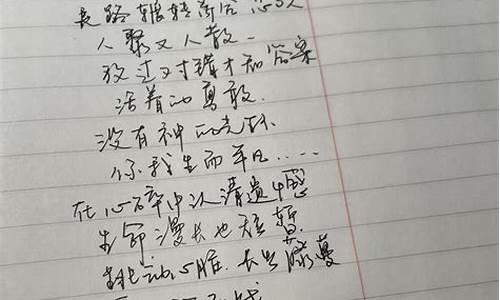 长路辗转离合
人聚又人散
放过对错才知答案
活着的勇敢
没有神的光环
你我生而平凡......
在心碎中认清遗憾
生命漫长也短暂
跳动心脏长出藤蔓